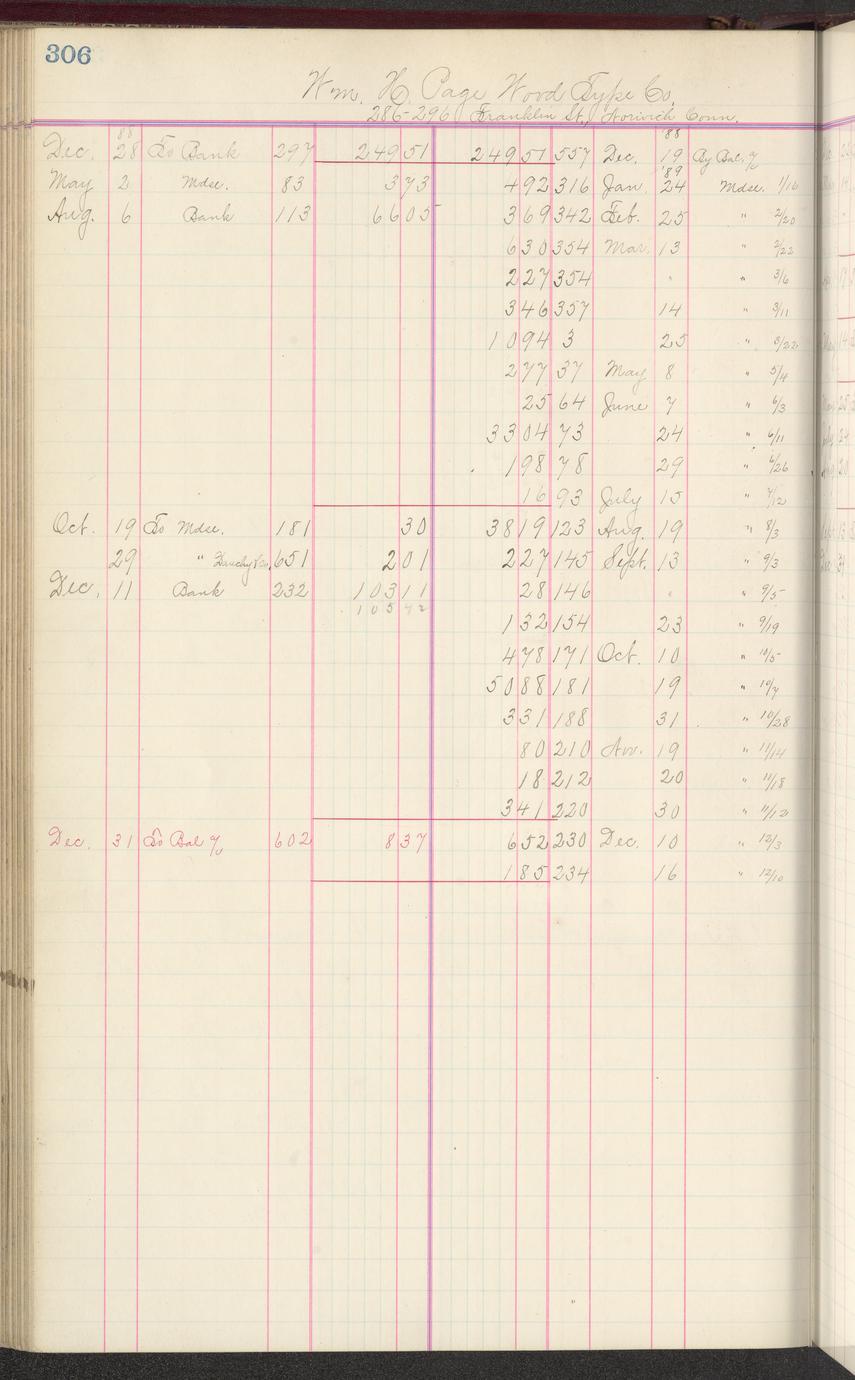 306
Wm. H. Page Wood Type Co.
286-296 Franklin St., Norwich Conn.
88 '88
Dec. 28 To Bank 297 249 51 249 51 557 Dec. 19 By Bal. %
'89
May 2 Mdse. 83 3 73 4 92 316 Jan. 24 Mdse. 1/16
Aug. 6 Bank 113 66 05 3 69 342 Feb. 25 " 2/20
6 30 354 Mar. 13 " 2/22
2 27 354 " " 3/6
3 46 357 14 " 3/11
10 94 3 25 " 3/22
2 77 37 May 8 " 5/4
25 64 June 7 " 6/3
33 04 73 24 " 6/11
1 98 78 29 " 6/26
16 93 July 15 " 7/12
Oct. 19 To Mdse. 181 30 38 19 123 Aug. 19 " 8/3
29 " 651 2 01 2 27 145 Sept. 13 " 9/3
Dec. 11 Bank 232 103 11 28 146 " " 9/5
105 42
1 32 154 23 " 9/19
4 78 171 Oct. 10 " 10/5
50 88 181 19 " 10/7
3 31 188 31 " 10/28
80 210 Nov. 19 " 11/14
18 212 20 " 11/18
3 41 220 30 " 11/12
Dec. 31 To Bal % 602 8 37 6 52 230 Dec. 10 " 12/3
1 85 234 16 " 12/10